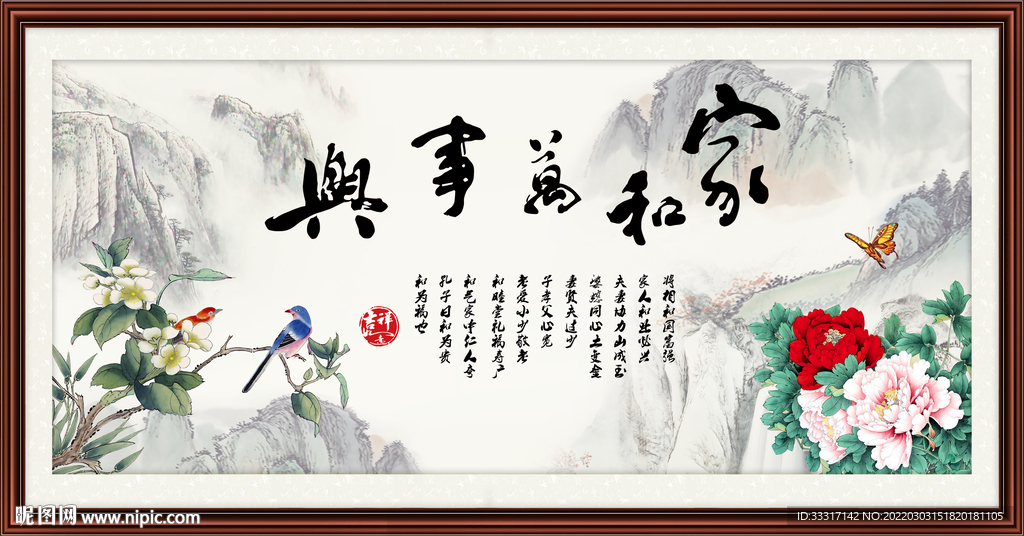 家和萬事興
将相和国富强
家人和业愈兴
夫妻协力山成玉
婆媳同心土变金
妻贤夫过少
子孝父心宽
老爱小少敬老
和睦堂礼福寿广
和气家中仁人奇
孔子曰和为贵
和为福也
吉祥
昵图网 www.nipic.com
ID:33317142 NO:20220303151820181105